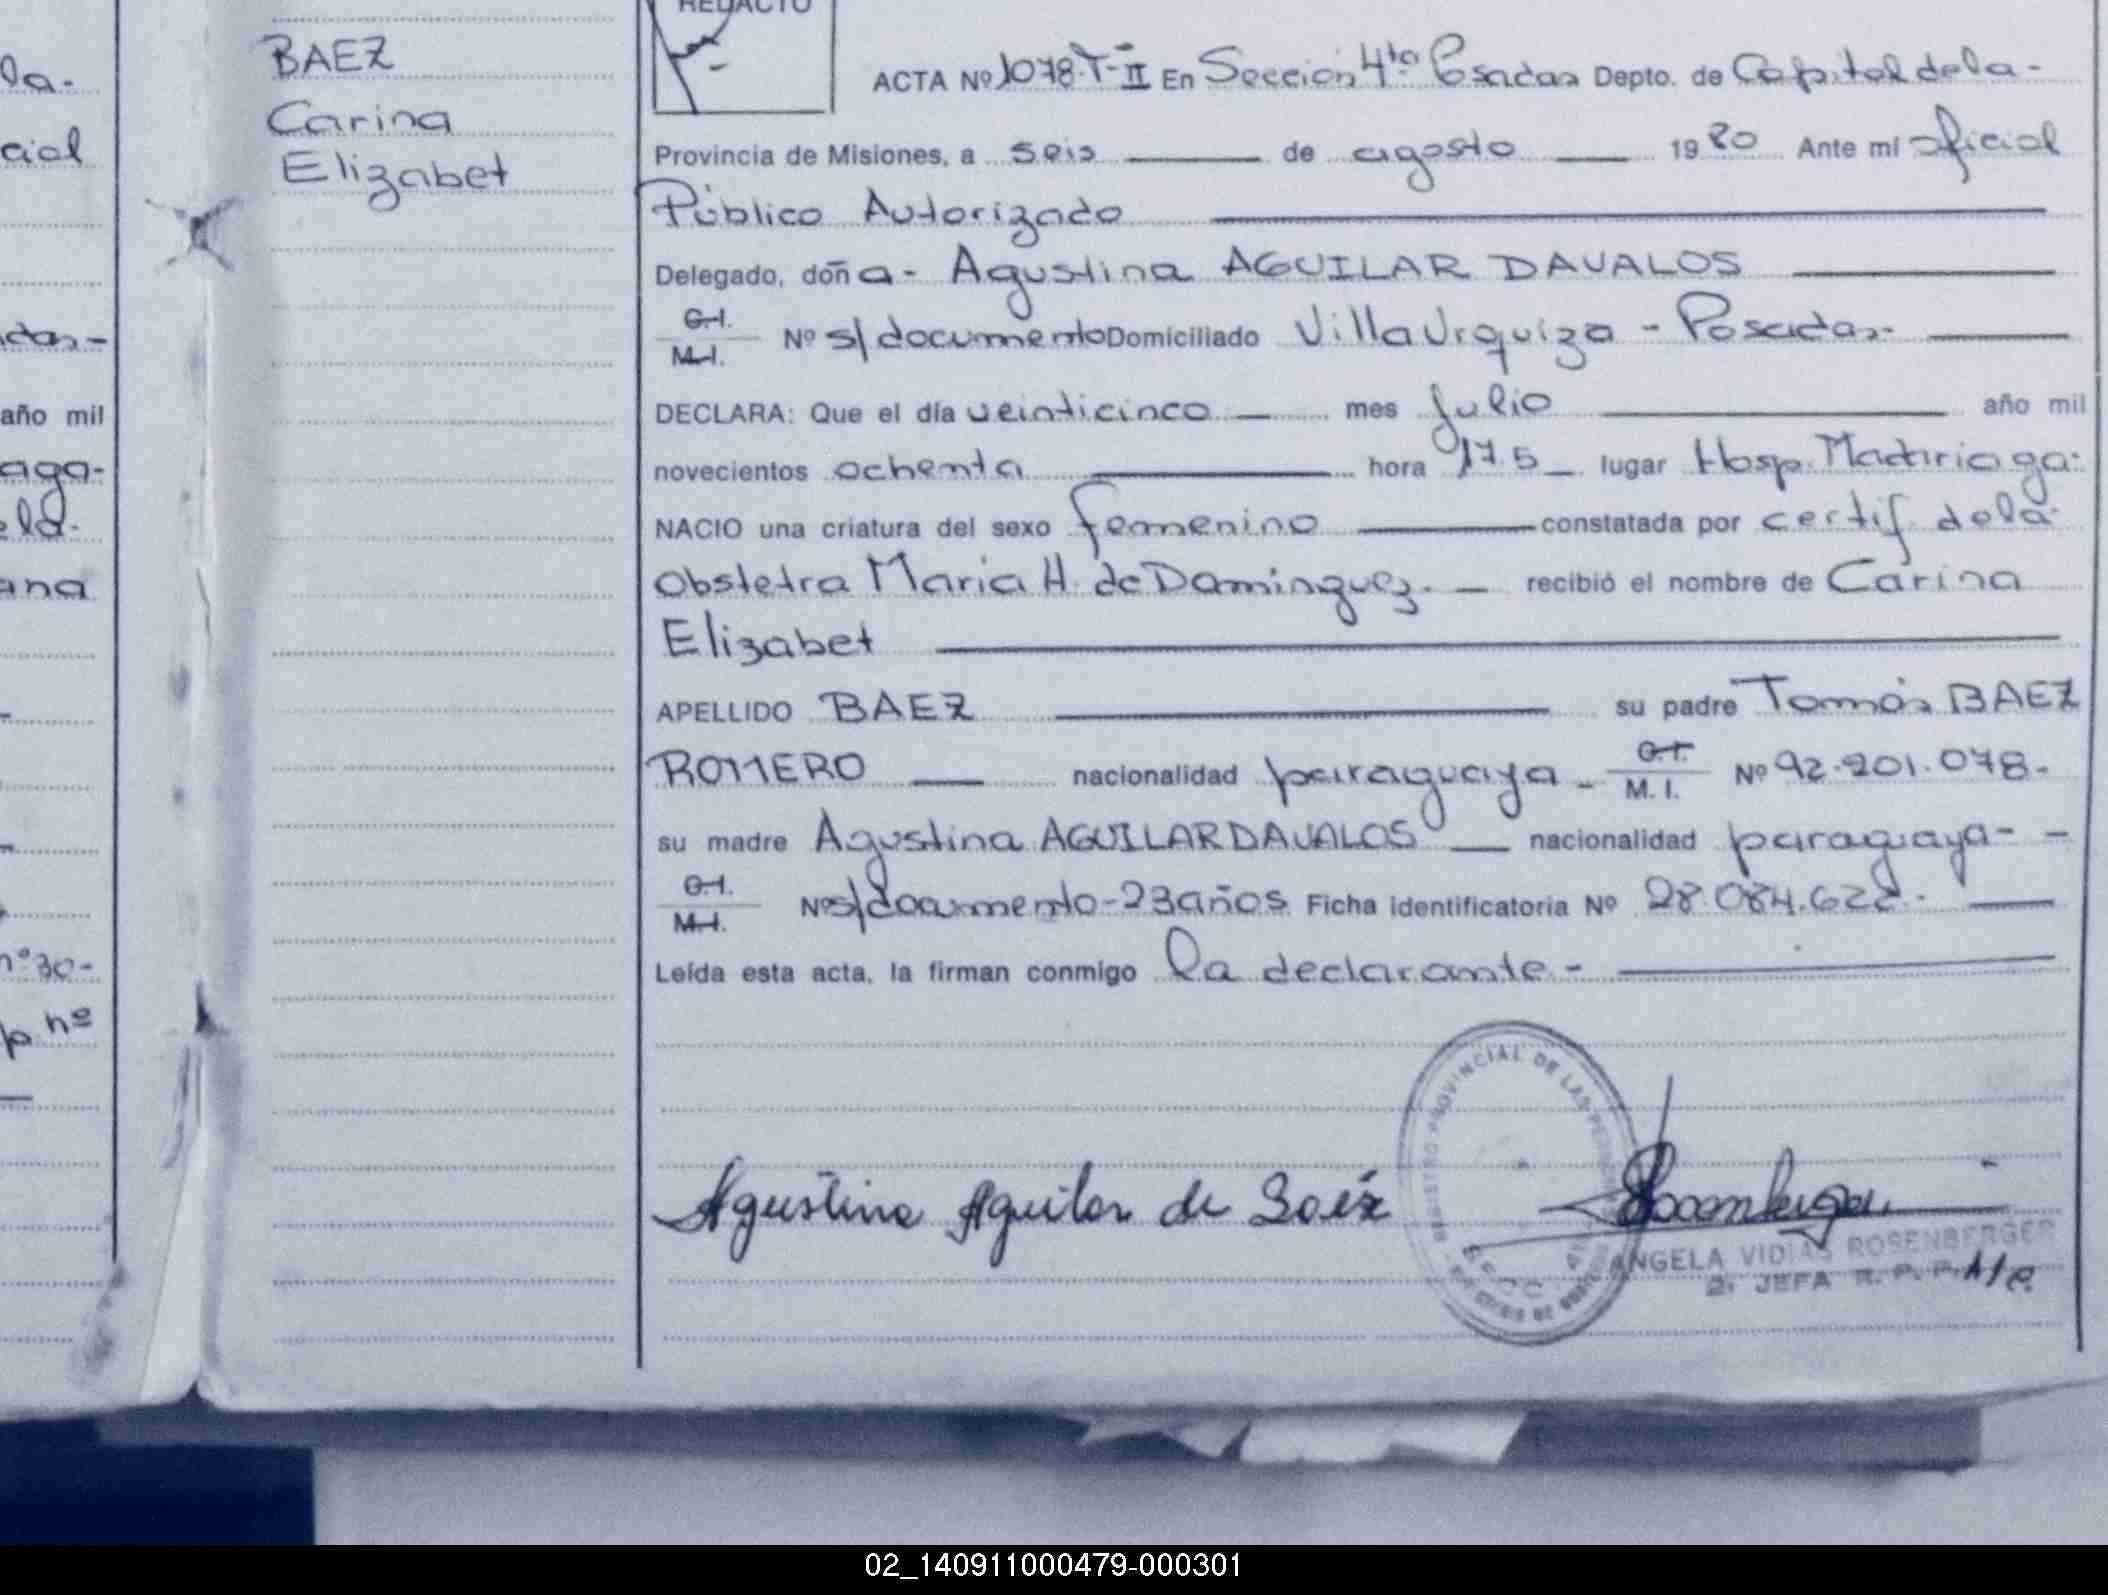 la-
cial
das-
año mil
aga-
ela-
ana
nº 30-
p. nº
BAEZ
Carina
Elizabet
REDACTO
ACTA Nº 1078-T-II En Sección 4ta Posadas Depto. de Capital de la-
Provincia de Misiones, a seis de agosto 1980 Ante mi oficial
Público Autorizado
Delegado, doña- Agustina AGUILAR DAVALOS
C.I.
M.I. Nº s/documento Domiciliado Villa Urquiza - Posadas-
DECLARA: Que el día veinticinco mes julio año mil
novecientos ochenta hora 17.5 lugar Hosp. Madiriaga-
NACIO una criatura del sexo femenino constatada por certif. de la
Obstetra Maria H. de Dominguez.- recibió el nombre de Carina
Elizabet
APELLIDO BAEZ su padre Tomás BAEZ
ROMERO nacionalidad paraguaya - C.I.
M.I. Nº 92.201.078-
su madre Agustina AGUILAR DAVALOS nacionalidad paraguaya-
C.I.
M.I. Nº s/documento-23 años Ficha identificatoria Nº 28.084.622-
Leída esta acta, la firman conmigo la declarante-
REGISTRO PROVINCIAL DE LAS PERSONAS
Agustina Aguilar de Baéz
ANGELA VIDIAS ROSENBERGER
2. JEFA R. P. P. A/c
02_140911000479-000301